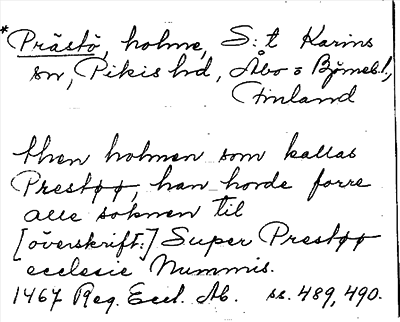 *Prästö, holme, S:t Karins
sn, Pikis hd, Åbo o Bjbgs l.,
Finland
then holmen som kallas
Prestøø, han horde forre
alle soknen til
[överskrift:] Super Prestøø
ecclesie Nummis.
1467 Reg. Eccl. Ab. ss. 489, 490.